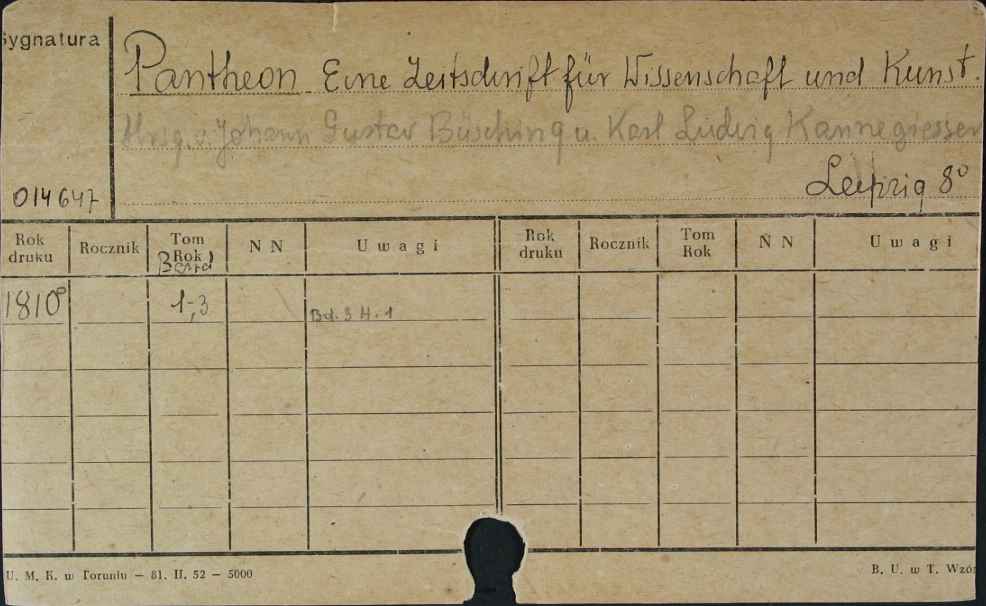 Sygnatura
Pantheon. Eine Zeitschrift für Wissenschaft und Kunst.
Hrsg. v. Johann Gustav Büsching u. Karl Ludwig Kannegiesser
Leipzig 8°
014647
Rok druku Rocznik Tom Rok Band N N Uwagi Rok druku Rocznik Tom Rok N N Uwagi
1810 1-3 Bd. 3 H. 1
U. M. K. w Toruniu — 81. II. 52 — 5000
B. U. w T. Wzór